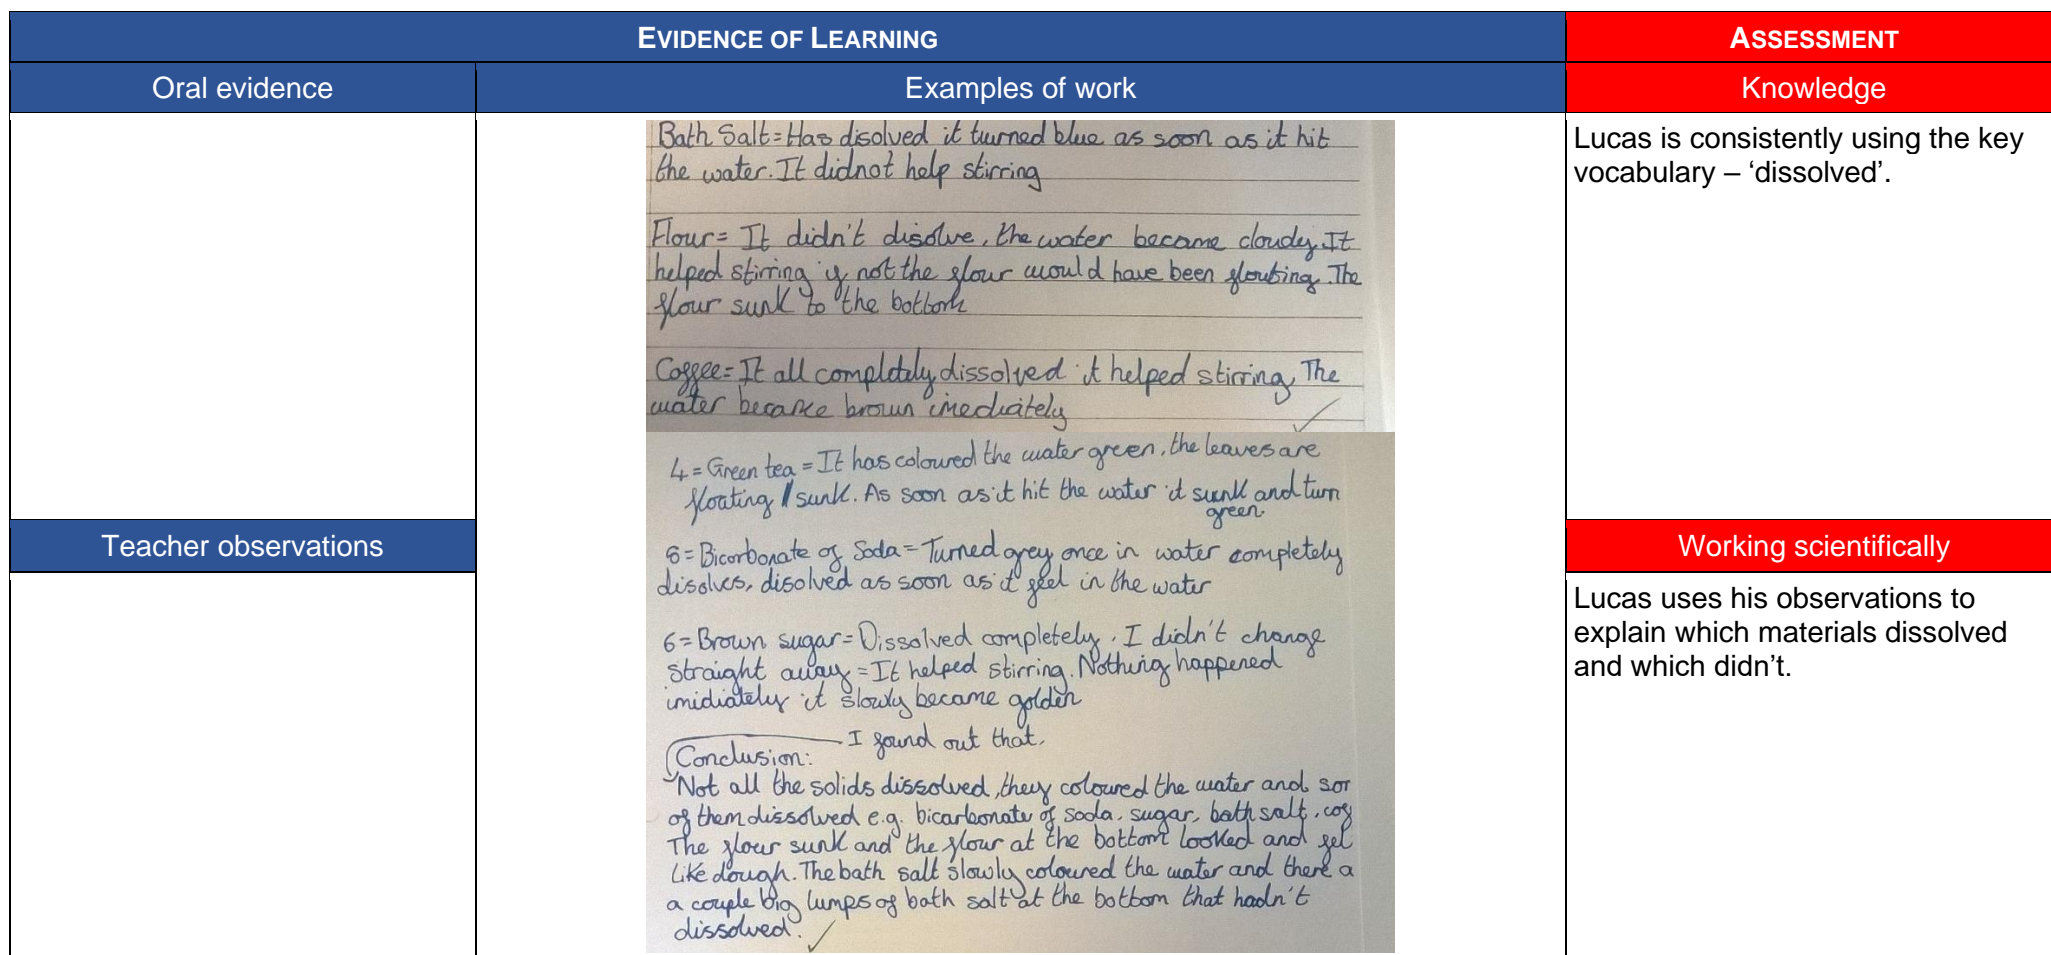 EVIDENCE OF LEARNING
ASSESSMENT
Oral evidence
Examples of work
Knowledge
Bath Salt = Has disolved it turned blue as soon as it hit
the water. It didnot help stirring
Flour = It didn't disolve, the water became cloudy. It
helped stirring if not the flour would have been floating. The
flour sunk to the bottom
Coffee = It all completely dissolved it helped stirring. The
water became brown imediately
4 = Green tea = It has coloured the water green, the leaves are
floating / sunk. As soon as it hit the water it sunk and turn
green.
Bicarbonate of Soda = Turned grey once in water completely
disolves, disolved as soon as it feel in the water
6 = Brown sugar = Dissolved completely. I didn't change
straight away = It helped stirring. Nothing happened
imidiately it slowly became golden
I found out that.
Conclusion:
Not all the solids dissolved, they coloured the water and so
of them dissolved e.g. bicarbonate of soda, sugar, bath salt, cof
The flour sunk and the flour at the bottom looked and fel
like dough. The bath salt slowly coloured the water and there a
a couple big lumps of bath salt at the bottom that hadn't
dissolved.
Lucas is consistently using the key
vocabulary – ‘dissolved’.
Teacher observations
Working scientifically
Lucas uses his observations to
explain which materials dissolved
and which didn’t.